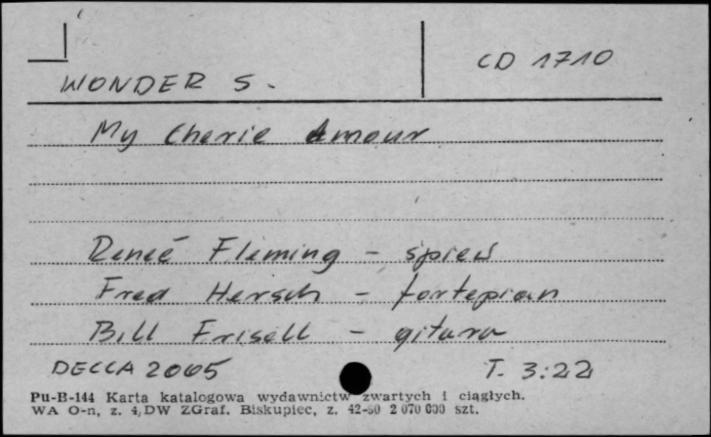 CD 1710
WONDER S.
My Cherie Amour
Reneé Fleming - śpiew
Fred Hersch - fortepian
Bill Frisell - gitara
DECCA 2005 T. 3:22
Pu-B-144 Karta katalogowa wydawnictw zwartych i ciągłych.
WA O-n, z. 4, DW ZGraf. Biskupiec, z. 42-80 2 070 000 szt.